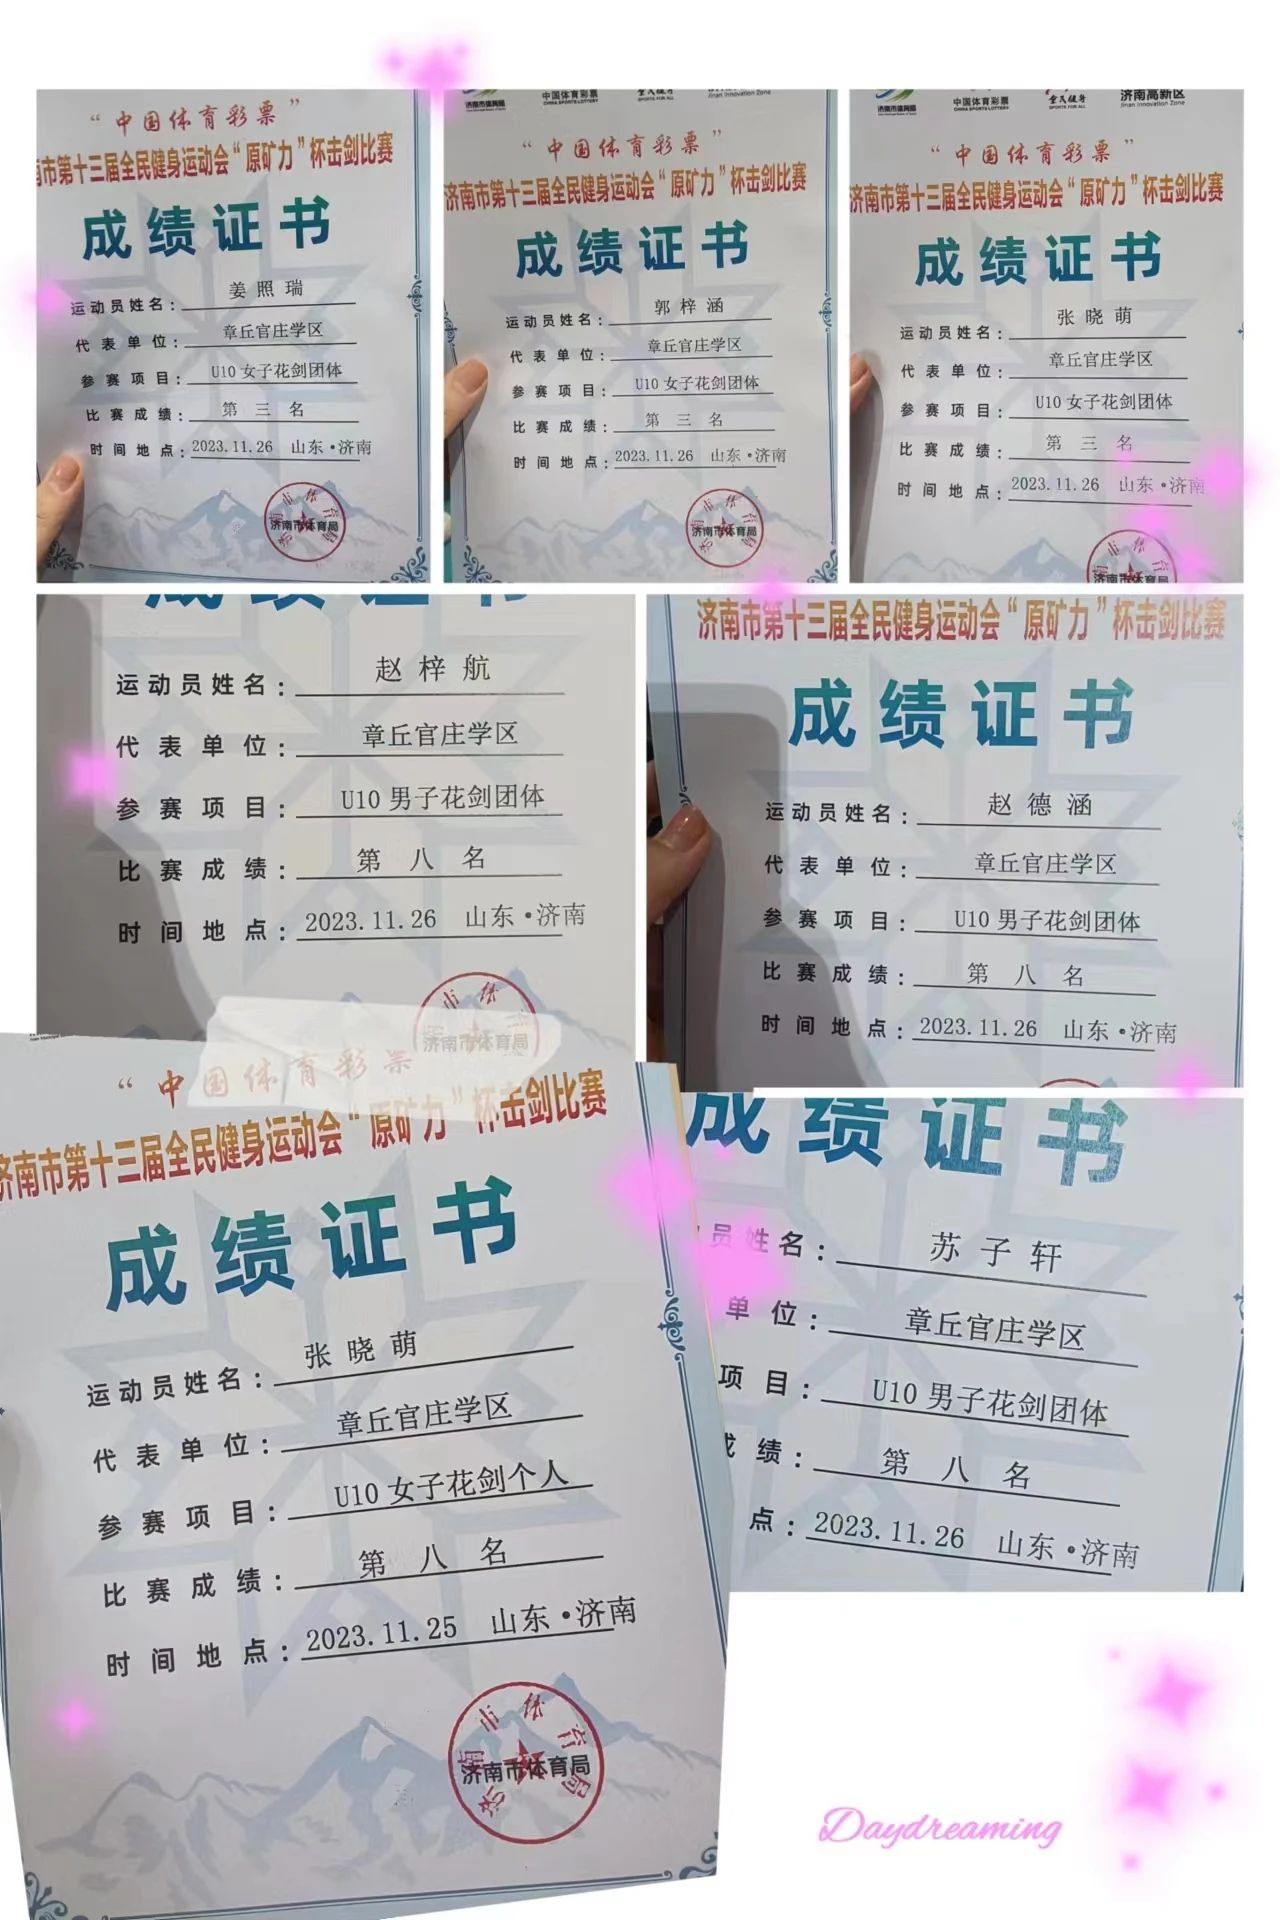 “中国体育彩票”
市第十三届全民健身运动会“原矿力”杯击剑比赛
成绩证书
运动员姓名：姜照瑞
代表单位：章丘官庄学区
参赛项目：U10女子花剑团体
比赛成绩：第三名
时间地点：2023.11.26 山东·济南
济南市体育局
济南市体育局
济南市体育局
中国体育彩票
CHINA SPORTS LOTTERY
全民健身
SPORTS FOR ALL
Jinan Innovation Zone
“中国体育彩票”
济南市第十三届全民健身运动会“原矿力”杯击剑比赛
成绩证书
运动员姓名：郭梓涵
代表单位：章丘官庄学区
参赛项目：U10女子花剑团体
比赛成绩：第三名
时间地点：2023.11.26 山东·济南
济南市体育局
济南市体育局
济南市体育局
中国体育彩票
CHINA SPORTS LOTTERY
全民健身
SPORTS FOR ALL
济南高新区
Jinan Innovation Zone
“中国体育彩票”
济南市第十三届全民健身运动会“原矿力”杯击剑比赛
成绩证书
运动员姓名：张晓萌
代表单位：章丘官庄学区
参赛项目：U10女子花剑团体
比赛成绩：第三名
时间地点：2023.11.26 山东·济南
济南市体育局
成绩证书
运动员姓名：赵梓航
代表单位：章丘官庄学区
参赛项目：U10男子花剑团体
比赛成绩：第八名
时间地点：2023.11.26 山东·济南
济南市体育局
济南市第十三届全民健身运动会“原矿力”杯击剑比赛
成绩证书
运动员姓名：赵德涵
代表单位：章丘官庄学区
参赛项目：U10男子花剑团体
比赛成绩：第八名
时间地点：2023.11.26 山东·济南
“中国体育彩票
济南市第十三届全民健身运动会“原矿力”杯击剑比赛
成绩证书
运动员姓名：张晓萌
代表单位：章丘官庄学区
参赛项目：U10女子花剑个人
比赛成绩：第八名
时间地点：2023.11.25 山东·济南
济南市体育局
济南市体育局
成绩证书
员姓名：苏子轩
单位：章丘官庄学区
项目：U10男子花剑团体
成绩：第八名
点：2023.11.26 山东·济南
Daydreaming